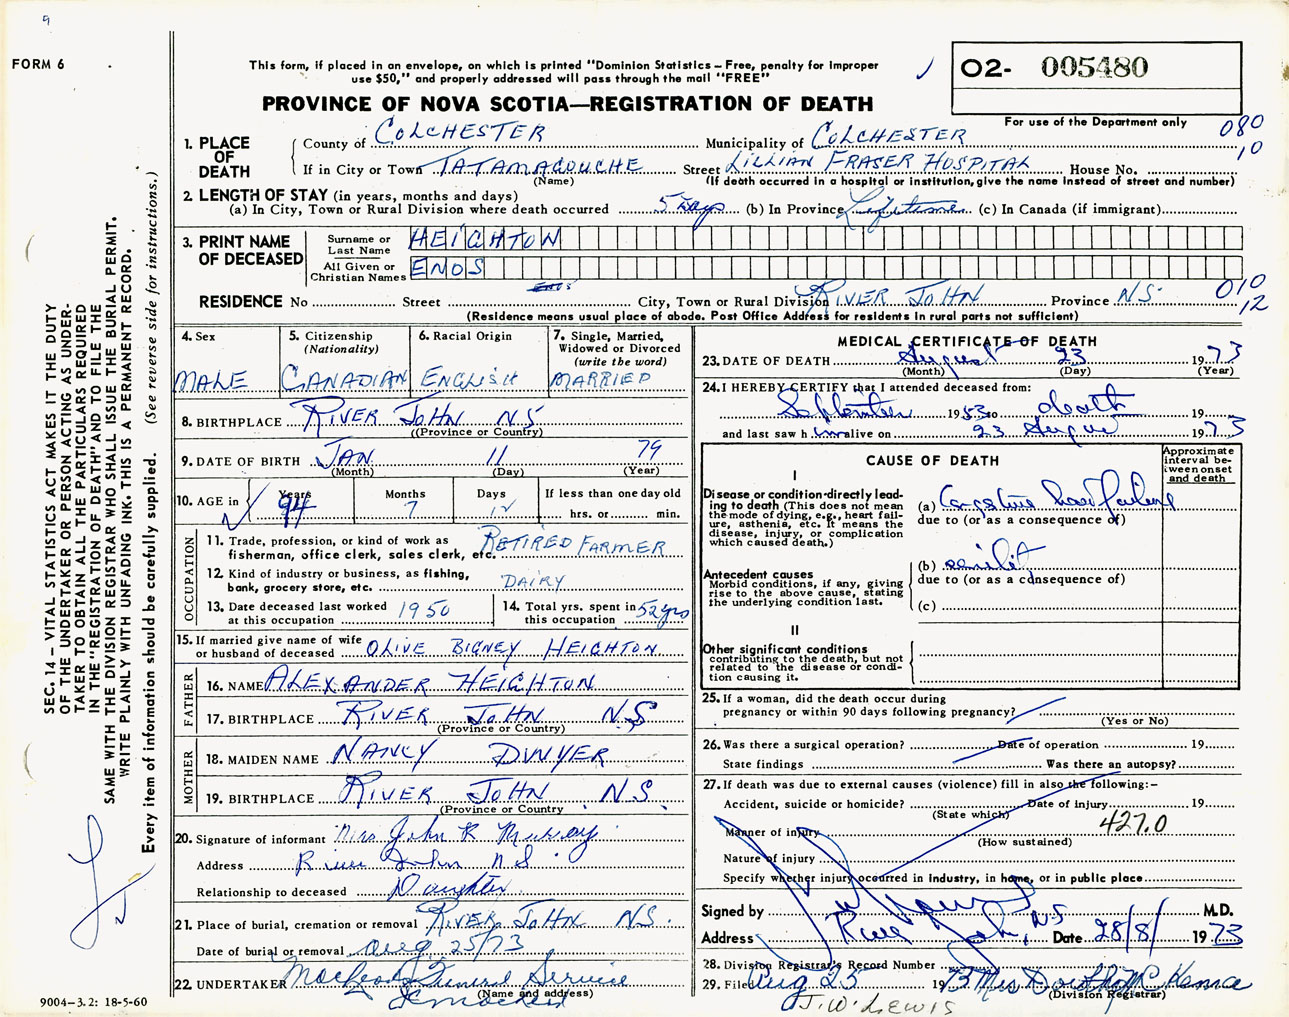 9
FORM 6
This form, if placed in an envelope, on which is printed "Dominion Statistics – Free, penalty for improper
use $50," and properly addressed will pass through the mail "FREE"
02- 005480
PROVINCE OF NOVA SCOTIA—REGISTRATION OF DEATH
For use of the Department only
080
10
1. PLACE OF DEATH
County of COLCHESTER Municipality of COLCHESTER
If in City or Town TATAMAGOUCHE Street LILLIAN FRASER HOSPITAL House No.
(Name) (If death occurred in a hospital or institution, give the name instead of street and number)
2. LENGTH OF STAY (in years, months and days)
(a) In City, Town or Rural Division where death occurred 5 days (b) In Province Lifetime (c) In Canada (if immigrant)
3. PRINT NAME OF DECEASED
Surname or Last Name HEIGHTON
All Given or Christian Names ENOS
010
12
RESIDENCE No Street City, Town or Rural Division RIVER JOHN Province NS.
(Residence means usual place of abode. Post Office Address for residents in rural parts not sufficient)
4. Sex MALE
5. Citizenship (Nationality) CANADIAN
6. Racial Origin ENGLISH
7. Single, Married, Widowed or Divorced (write the word) MARRIED
8. BIRTHPLACE RIVER JOHN NS
(Province or Country)
9. DATE OF BIRTH JAN 11 79
(Month) (Day) (Year)
10. AGE in Years 94 Months 7 Days 12 If less than one day old
hrs. or min.
OCCUPATION
11. Trade, profession, or kind of work as
fisherman, office clerk, sales clerk, etc. RETIRED FARMER
12. Kind of industry or business, as fishing,
bank, grocery store, etc. DAIRY
13. Date deceased last worked
at this occupation 1950
14. Total yrs. spent in
this occupation 52 yrs
15. If married give name of wife
or husband of deceased OLIVE BIGNEY HEIGHTON
FATHER
16. NAME ALEXANDER HEIGHTON
17. BIRTHPLACE RIVER JOHN NS
(Province or Country)
MOTHER
18. MAIDEN NAME NANCY DWYER
19. BIRTHPLACE RIVER JOHN NS
(Province or Country
20. Signature of informant Mrs John R Murray
Address River John N S
Relationship to deceased Daughter
21. Place of burial, cremation or removal RIVER JOHN NS.
Date of burial or removal Aug 25/73
22. UNDERTAKER MacLeods Funeral Service
(Name and address)
MEDICAL CERTIFICATE OF DEATH
23. DATE OF DEATH August 23 1973
(Month) (Day) (Year)
24. I HEREBY CERTIFY that I attended deceased from:
September 1953 to death 19
and last saw him alive on 23 August 1973
CAUSE OF DEATH
Approximate interval between onset and death
I
Disease or condition directly lead-
ing to death (This does not mean
the mode of dying, e.g., heart fail-
ure, asthenia, etc. It means the
disease, injury, or complication
which caused death.)
(a) Congestive heart failure
due to (or as a consequence of)
Antecedent causes
Morbid conditions, if any, giving
rise to the above cause, stating
the underlying condition last.
(b) senility
due to (or as a consequence of)
(c)
II
Other significant conditions
contributing to the death, but not
related to the disease or condi-
tion causing it.
25. If a woman, did the death occur during
pregnancy or within 90 days following pregnancy?
(Yes or No)
26. Was there a surgical operation? Date of operation 19
State findings Was there an autopsy?
27. If death was due to external causes (violence) fill in also the following:–
Accident, suicide or homicide? Date of injury 19
(State which)
427.0
Manner of injury
(How sustained)
Nature of injury
Specify whether injury occurred in industry, in home, or in public place
Signed by M.D.
Address River John, NS Date 28/8/ 1973
28. Division Registrar's Record Number
29. Filed Aug 25 1973 Mrs Dorothy McKenna
(Division Registrar)
J. W. LEWIS
SEC. 14 – VITAL STATISTICS ACT MAKES IT THE DUTY
OF THE UNDERTAKER OR PERSON ACTING AS UNDER-
TAKER TO OBTAIN ALL THE PARTICULARS REQUIRED
IN THE "REGISTRATION OF DEATH" AND TO FILE THE
SAME WITH THE DIVISION REGISTRAR WHO SHALL ISSUE THE BURIAL PERMIT.
WRITE PLAINLY WITH UNFADING INK. THIS IS A PERMANENT RECORD.
Every item of information should be carefully supplied. (See reverse side for instructions.)
9004-3.2: 18-5-60